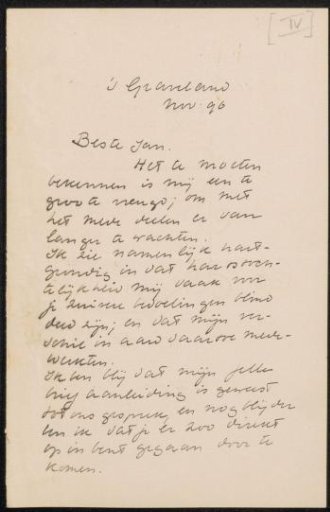 [IV]
's Graveland
Nov 96
Beste Jan.
Het te moeten
bekennen is mij een te
groote vreugd, om met
het mede deelen er van
langer te wachten.
Ik zie namenlijk hart-
grondig in dat har
telijkheid mij vaak voor
je zuivere bedoelingen blind
deed zijn, en dat mijn ver-
schil in aard daartoe mede-
werkten.
Ik ben blij dat mijn felle
brief aanleiding is geweest
tot ons gesprek, en nog blijder
ben ik dat je er zoo direkt
op in bent gegaan door te
komen.